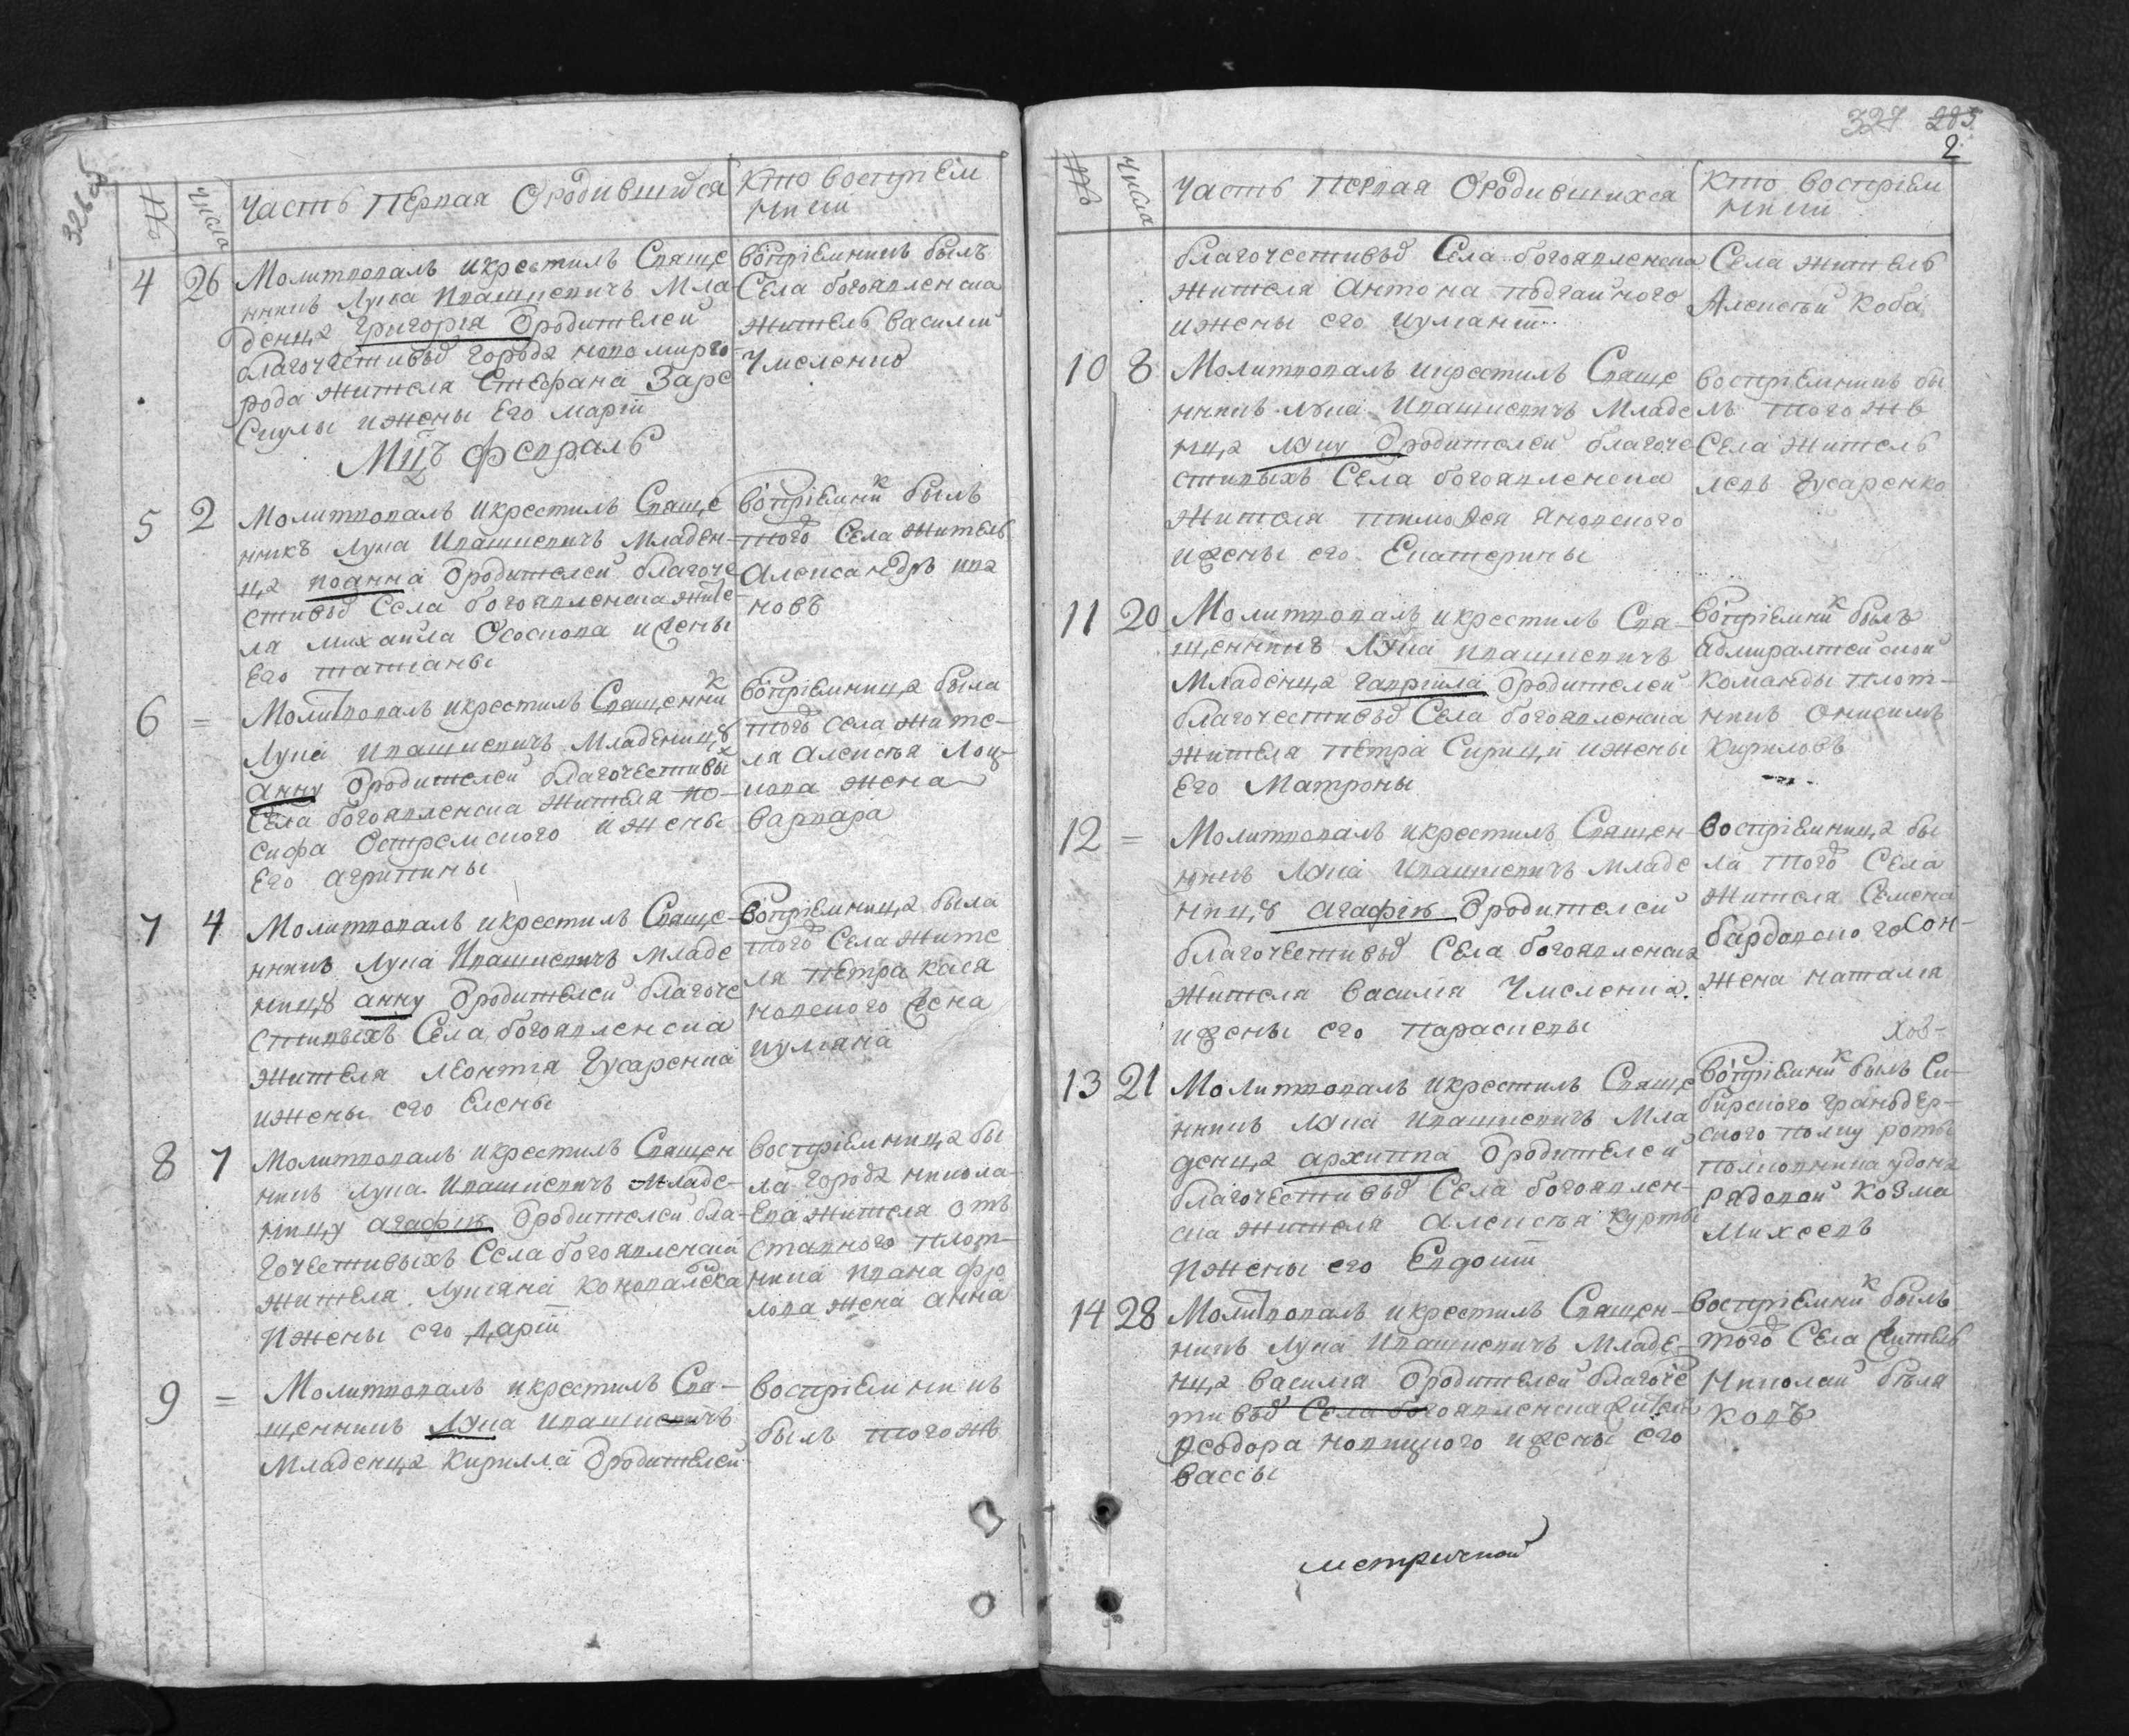 326 об
№ числа Часть первая Ородившихся Кто воспрiем
ники
4 26 Молитвовалъ икрестилъ Свяще
нникъ Лука Ивашкевичъ Мла
денца Григорiя Ородителей
благочестивых города новомирго
рода жителя Стефана Заре
Скулы ижены Его марфы
воспрiемникъ былъ
Села богоявленска
житель василiй
Чмеленко
Мцъ февраль
5 2 Молитвовалъ икрестилъ Свяще
нникъ Лука Ивашкевичъ младен-
ца иоанна Ородителей благоче
стивых Села богоявленска жите
ля михаила Ососкова ижены
Его татiаны
воспрiемник былъ
того Села житель
Александръ ива
новъ
6 = Молитвовалъ икрестилъ Священник
Лука ивашкевичъ младеницу
анну Ородителей благочестивых
Села богоявленска жителя ио-
сифа Остремского ижены
Его агрипины
воспрiемница была
того села жите-
ля алексѣя Лощ-
кова жена
варвара
7 4 Молитвовалъ икрестилъ Свяще-
нникъ Лука Ивашкевичъ младе
ницу анну Ородителей благоче
стивыхъ Села богоявленска
жителя леонтiя Гусаренка
ижены его Елены
воспрiемница была
того Села жите
ля петра кася
новского жена
иулiяна
8 7 Молитвовалъ икрестилъ Священ
никъ лука Ивашкевичъ младе-
ницу агафiю Ородителей бла-
гочестивыхъ Села богоявленска
жителя Лукiяна коновалска
ижены его дарiи
воспрiемница бы
ла города никола
ева жителя отъ
ставного плот-
ника ивана фро
лова жена анна
9 = Молитвовалъ икрестилъ Свя-
щенникъ Лука ивашкевичъ
младенца кирилла Ородителей
воспрiемникъ
былъ тогожъ
327 283
2
№ числа Часть первая Ородившихся Кто воспрiем
ники
благочестивых Села богоявленска
жителя антона подгайного
ижены его иулианiи
Села житель
Алексѣй коба
10 8 Молитвовалъ икрестилъ Свяще
нникъ лука Ивашкевичъ младе
нца луку Ородителей благоче
стивыхъ Села богоявленска
жителя тимофея яновского
ижены его Екатерины
воспрiемникъ бы
лъ того же
Села житель
левъ Гусаренко
11 20 Молитвовалъ икрестилъ Свя-
щенникъ лука ивашкевичъ
младенца гаврiила Ородителей
благочестивых Села богоявленска
жителя петра Сирици ижены
Его матроны
воспрiемник былъ
адмиралтейской
команды плот-
никъ онисимъ
кириловъ
12 = Молитвовалъ икрестилъ Священ-
никъ лука Ивашкевичъ младе
ницу агафiю Ородителей
благочестивых Села богоявленска
жителя василiя Чмеленка
ижены его параскевы
воспрiемница бы
ла того Села
жителя Семена
бардовско го Сон-
жена наталiя
хов-
13 21 Молитвовалъ икрестилъ Свяще
нникъ лука Ивашкевичъ мла
денца архиппа Ородителей
благочестивых Села богоявлен-
ска жителя алексѣя курты
ижены его Евдокiи
воспрiемник былъ Си-
бирского гранодер-
ского полку роты
полковника удома
рядовой козма
михеевъ
14 28 Молитвовалъ икрестилъ Священ-
никъ лука Ивашкевичъ младе-
нца василiя Ородителей благоче
тивых Села богоявленска жителя
феодора новицкого ижены его
вассы
воспрiемник былъ
того Села житель
николай бѣля
ковъ
метричной